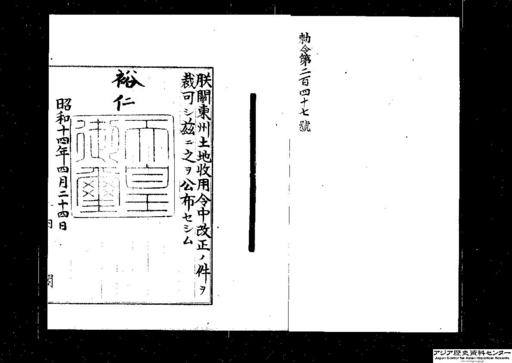 勅令第二百四十七號
朕關東州土地收用令中改正ノ件ヲ
裁可シ茲ニ之ヲ公布セシム
裕仁
天皇御璽
昭和十四年四月二十四日
内閣
アジア歴史資料センター
Japan Center for Asian Historical Records